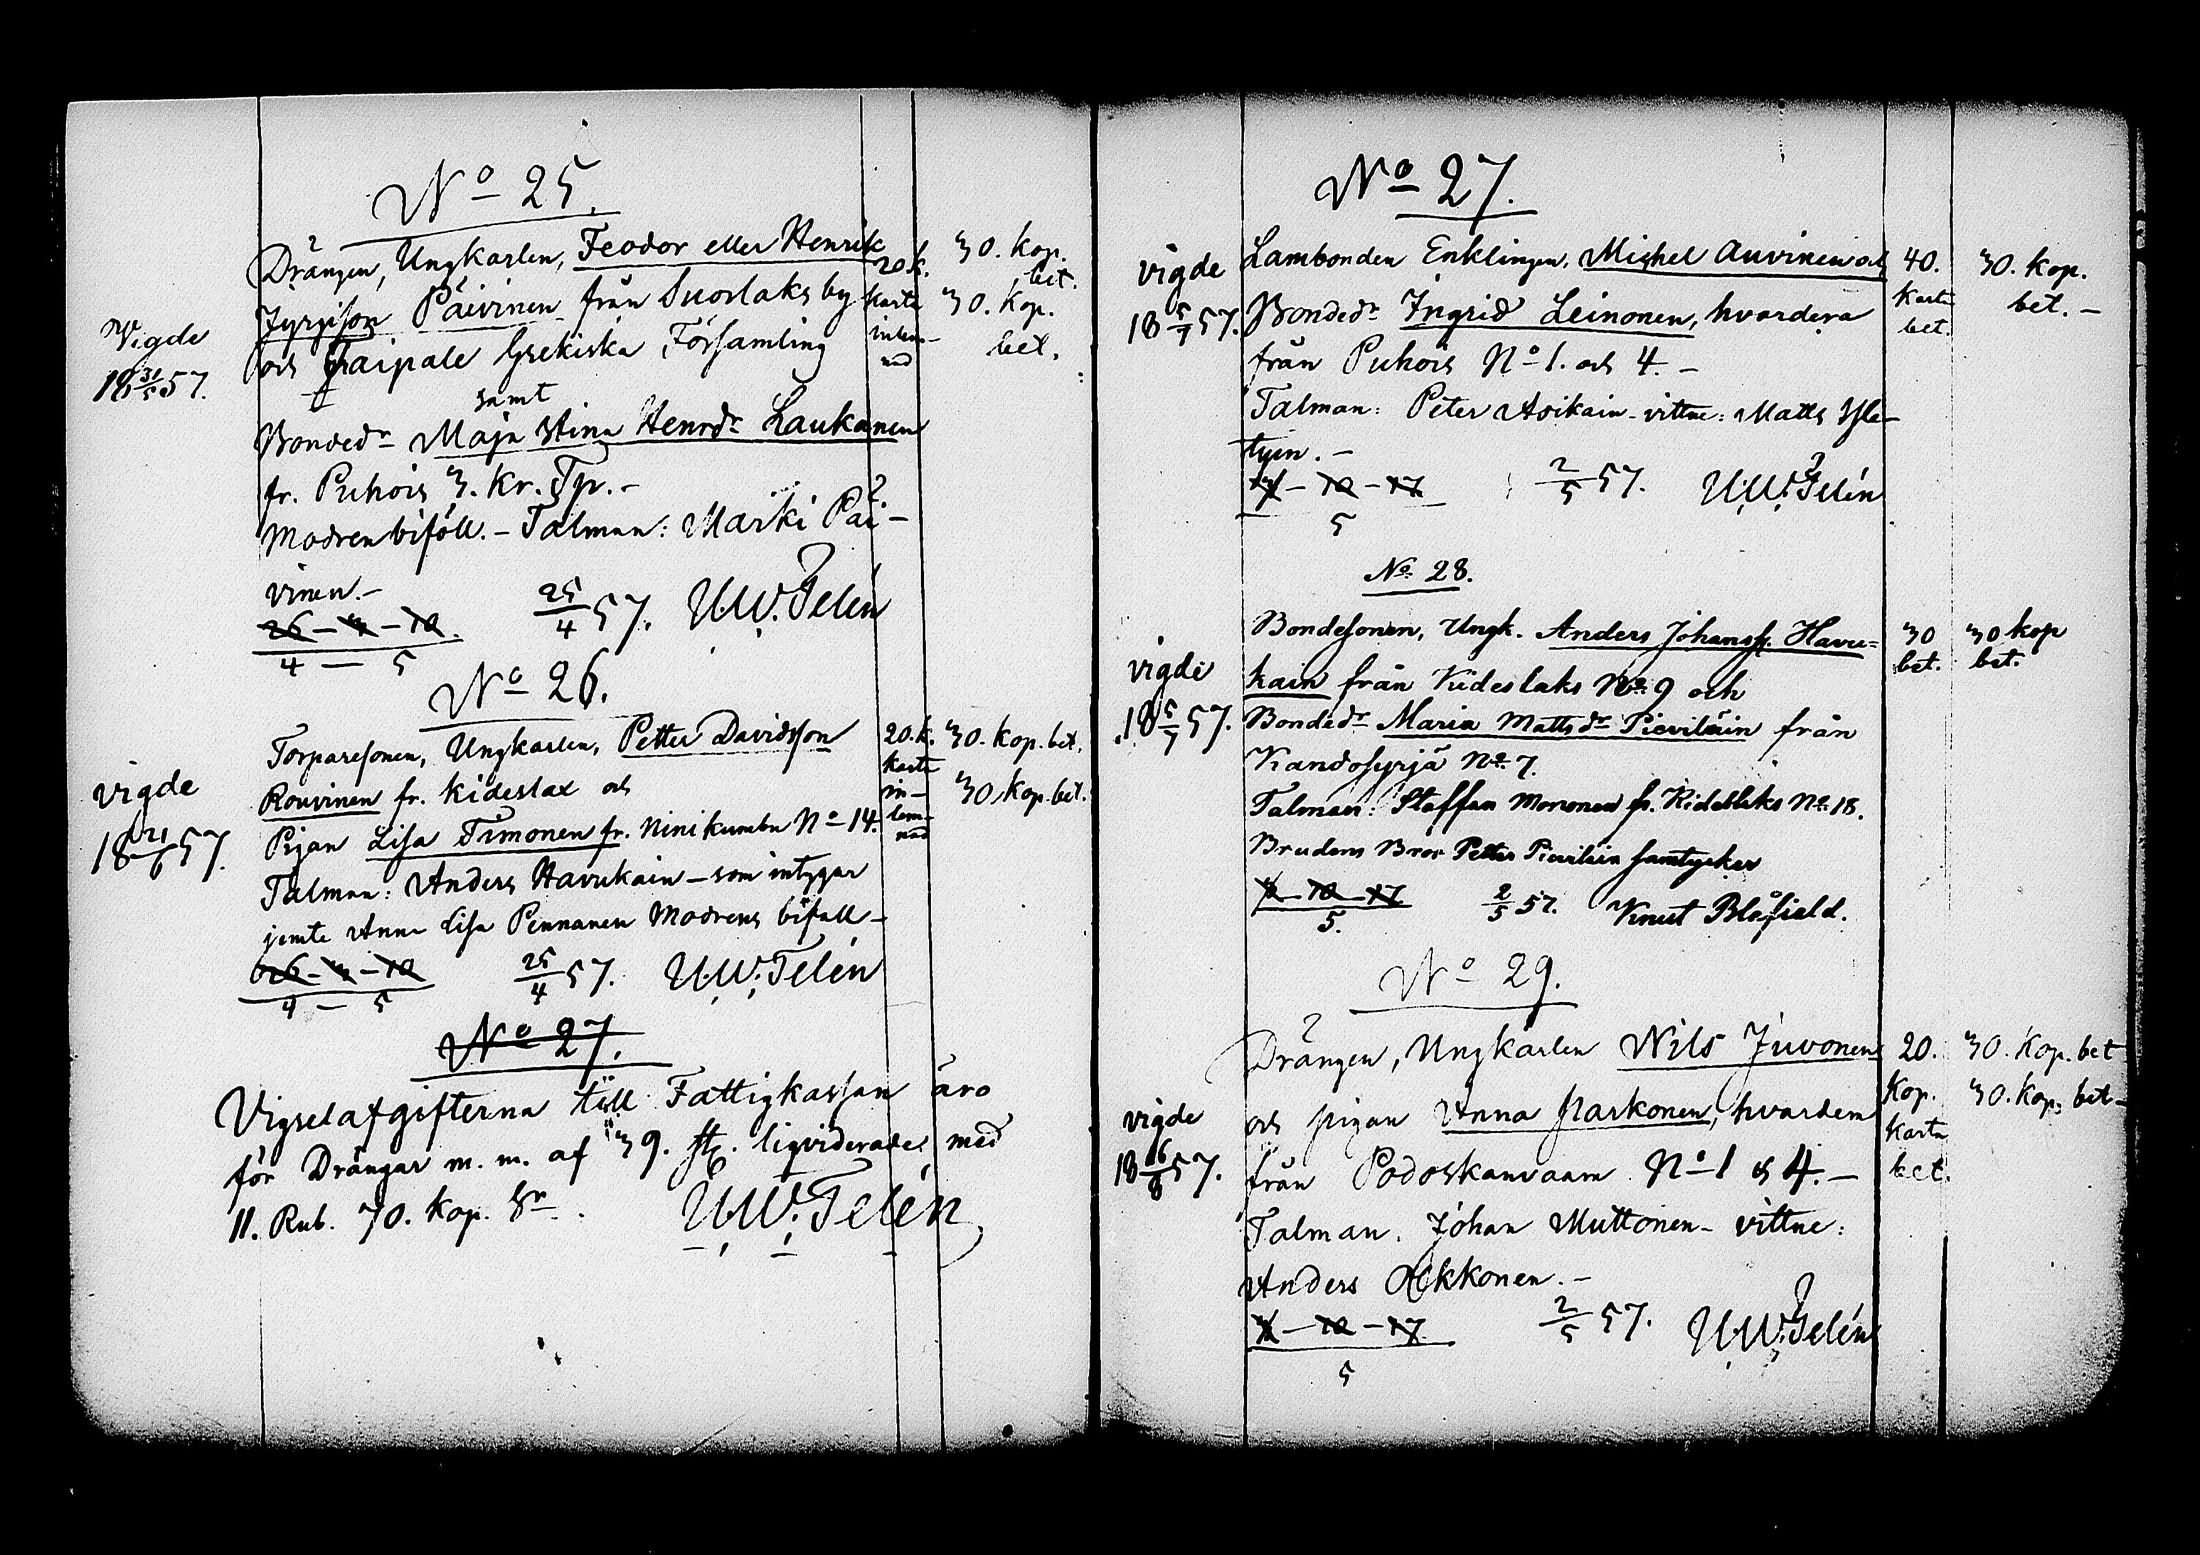 No 25.
Drängen, Ungkarlen, Feodor eller Henrik
Jyrgison Päivinen från Suorlaks by
och Taipale Grekiska Församling
samt
Bondedr Maja Stina Henrdr Laukanen
fr. Puhois 3. Kr. Tp. -
Modren biföll. - Talman: Marki Päi-
vinen. -
26 - 3 - 10.
4 - 5
25/4 57. U.W. Telén
Vigde
18 31/5 57.
20 k.
karta
inlem-
nad
30. kop.
bet.
30. kop.
bet.
No 26.
Torparesonen, Ungkarlen, Petter Davidsson
Rouvinen fr. Kideslax och
Pigan Lisa Timonen fr. Niinikumbu No 14.
Talman: Anders Havukain - som intygar
jemte Anna Lisa Pennanen Modrens bifall -
26 - 3 - 10
4 - 5
25/4 57. U.W. Telén
vigde
18 21/6 57.
20. k.
karta
in-
lem-
nad
30. kop. bet.
30. kop. bet.
No 27.
Vigselafgifterna till Fattigkassan äro
för Drängar m. m. af 39. st. liqviderade med
11. Rub. 70. kop. Sr.
U.W. Telén
No 27.
Lambonden Enklingen, Michel Auvinen och
Bondedr Ingrid Leinonen, hvardera
från Puhois No 1. och 4. -
Talman: Peter Asikain - vittne: Matts
tyin. -
3 - 10 - 17
5
2/5 57. U.W. Telén
vigde
18 5/7 57.
40.
karta
bet.
30. kop.
bet. -
No 28.
Bondesonen, Ungk. Anders Johanss. Havu-
kain från Kideslaks No 9 och
Bondedr Maria Mattsdr Pieviläin från
Kandosyrjä No 7.
Talman: Staffan Mononen fr. Kideslaks No 18.
Brudens Bror Petter Pieviläin samtycker
3 - 10 - 17
5.
2/5 57. Knut Blåfield.
vigde
18 5/7 57.
30
bet.
30 kop
bet.
No 29.
Drängen, Ungkarlen Nils Juvonen
och pigan Anna Parkonen, hvardera
från Podoskanvaara No 1 & 4. -
Talman. Johan Muttonen - vittne:
Anders Ockkonen. -
3 - 10 - 17.
5
2/5 57. U.W. Telén
vigde
18 16/8 57.
20.
kop.
karta
bet.
30. kop. bet
30. kop. bet -